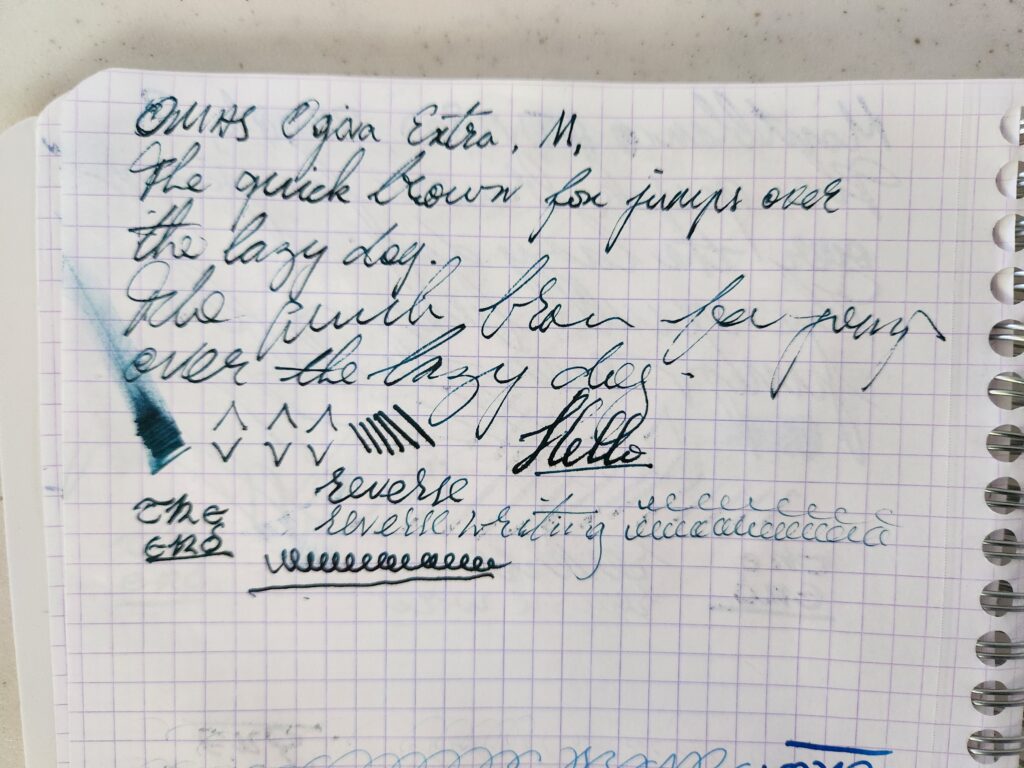 OMAS Ogiva Extra, M,
The quick brown fox jumps over
the lazy dog.
The quick brown fox jumps
over the lazy dog.
Hello
reverse
reverse writing
THE
END